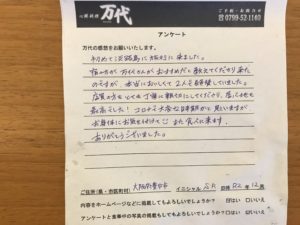 万代
ご予約・お問合せ
0799-52-1140
アンケート
万代の感想をお願いいたします。
初めて淡路島に旅行に来ました。
万代さんがおすすめだと教えてくださり来た
のですが、本当においしくて2人で感動していました。
店員の方もとても丁寧に親切にしてくださり、
最高でした！コロナで大変な時期かと思いますが
お身体にお気を付けて また食べに来ます。
ありがとうございました。
ご住所(県・市区町村) 大阪府豊中市 イニシャル 日時 12月
内容をホームページなどに掲載してもよろしいでしょうか？ はい □いいえ
アンケートと食事中の写真の掲載もしてもよろしいでしょうか？ □はい □いいえ